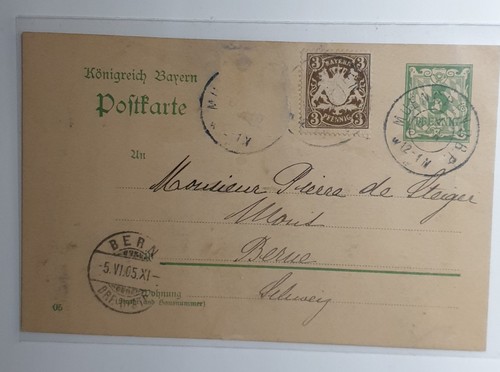 Königreich Bayern
Postkarte
3 BAYERN 3
PFENNIG
An
Monsieur Pierre de Steiger
Mons
Berne
Schweiz
BERN
-5.VI.05.XI-
Wohnung
(Straße und Hausnummer)
05